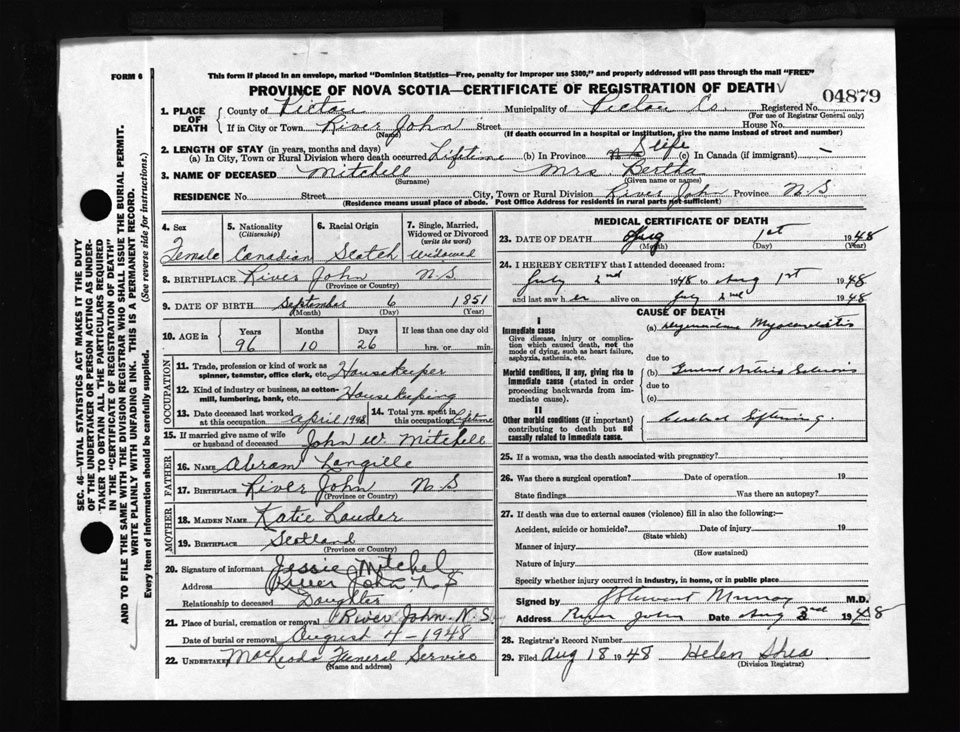 FORM 6
This form if placed in an envelope, marked "Dominion Statistics—Free, penalty for improper use $300," and properly addressed will pass through the mail "FREE"
PROVINCE OF NOVA SCOTIA—CERTIFICATE OF REGISTRATION OF DEATH
04879
1. PLACE OF DEATH
County of Pictou Municipality of Pictou Co. Registered No.
(For use of Registrar General only)
If in City or Town River John Street House No.
(Name) (If death occurred in a hospital or institution, give the name instead of street and number)
2. LENGTH OF STAY (in years, months and days)
(a) In City, Town or Rural Division where death occurred Lifetime (b) In Province life (c) In Canada (if immigrant) —
3. NAME OF DECEASED Mitchell Mrs. Bertha
(Surname) (Given name or names)
RESIDENCE No. Street City, Town or Rural Division River John Province N.S
(Residence means usual place of abode. Post Office Address for residents in rural parts not sufficient)
4. Sex Female
5. Nationality (Citizenship) Canadian
6. Racial Origin Scotch
7. Single, Married, Widowed or Divorced (write the word) Widowed
8. BIRTHPLACE River John N.S
(Province or Country)
9. DATE OF BIRTH September 6 1851
(Month) (Day) (Year)
10. AGE in Years Months Days If less than one day old
96 10 26 hrs. or min.
OCCUPATION
11. Trade, profession or kind of work as spinner, teamster, office clerk, etc. Housekeeper
12. Kind of industry or business, as cotton-mill, lumbering, bank, etc. Housekeeping
13. Date deceased last worked at this occupation April 1948
14. Total yrs. spent in this occupation Lifetime
15. If married give name of wife or husband of deceased John W. Mitchell
FATHER
16. NAME Abram Langille
17. BIRTHPLACE River John N.S
(Province or Country)
MOTHER
18. MAIDEN NAME Katie Lauder
19. BIRTHPLACE Scotland
(Province or Country)
20. Signature of informant Jessie Mitchel
Address River John N.S
Relationship to deceased Daughter
21. Place of burial, cremation or removal River John. N.S.
Date of burial or removal August 4 - 1948
22. UNDERTAKER MacLeods Funeral Service
(Name and address)
MEDICAL CERTIFICATE OF DEATH
23. DATE OF DEATH Aug 1st 1948
(Month) (Day) (Year)
24. I HEREBY CERTIFY that I attended deceased from:
July 2nd 1948 to Aug 1st 1948
and last saw her alive on July 2nd 1948
CAUSE OF DEATH
I
Immediate cause
Give disease, injury or complication which caused death, not the mode of dying, such as heart failure, asphyxia, asthenia, etc.
(a) Myocarditis
due to
Morbid conditions, if any, giving rise to immediate cause (stated in order proceeding backwards from immediate cause).
(b) General Arterio Sclerosis
due to
(c)
II
Other morbid conditions (if important) contributing to death but not causally related to immediate cause.
Cerebral Softening.
25. If a woman, was the death associated with pregnancy?
26. Was there a surgical operation? Date of operation 19
State findings Was there an autopsy?
27. If death was due to external causes (violence) fill in also the following:—
Accident, suicide or homicide? Date of injury 19
(State which)
Manner of injury
(How sustained)
Nature of injury
Specify whether injury occurred in industry, in home, or in public place
Signed by J Stewart Murray M.D.
Address River John Date Aug 3rd 1948
28. Registrar's Record Number
29. Filed Aug 18 1948 Helen Shea
(Division Registrar)
SEC. 46—VITAL STATISTICS ACT MAKES IT THE DUTY
OF THE UNDERTAKER OR PERSON ACTING AS UNDER-
TAKER TO OBTAIN ALL THE PARTICULARS REQUIRED
IN THE "CERTIFICATE OF REGISTRATION OF DEATH"
AND TO FILE THE SAME WITH THE DIVISION REGISTRAR WHO SHALL ISSUE THE BURIAL PERMIT.
WRITE PLAINLY WITH UNFADING INK. THIS IS A PERMANENT RECORD.
Every item of information should be carefully supplied. (See reverse side for instructions.)